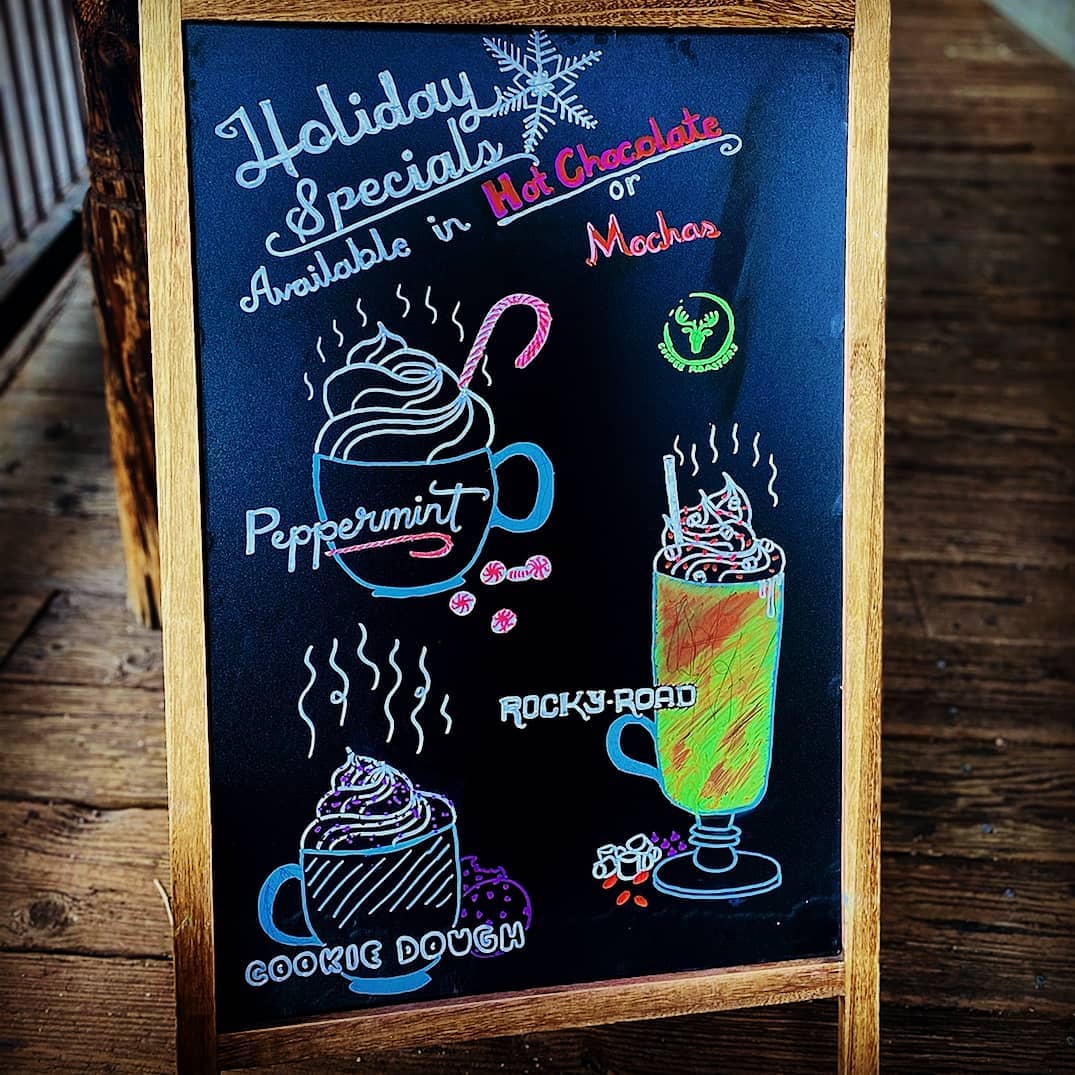 Holiday
Specials
Available in Hot Chocolate
or
Mochas
COFFEE ROASTERS
Peppermint
ROCKY-ROAD
COOKIE DOUGH